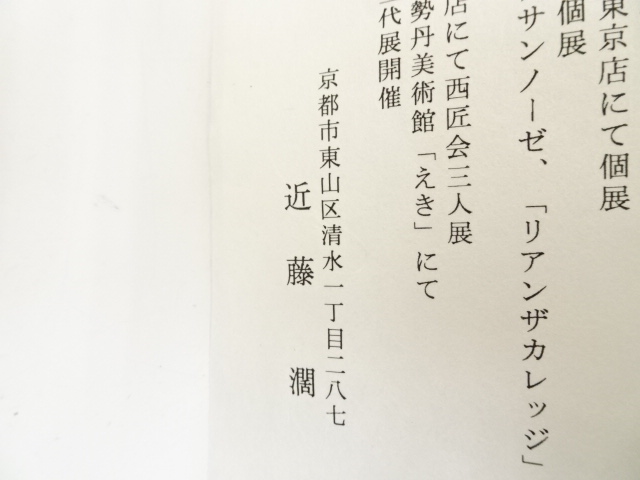 東京店にて個展
個展
サンノーゼ、「リアンザカレッジ」
店にて西匠会三人展
勢丹美術館「えき」にて
代展開催
京都市東山区清水一丁目二八七
近藤濶